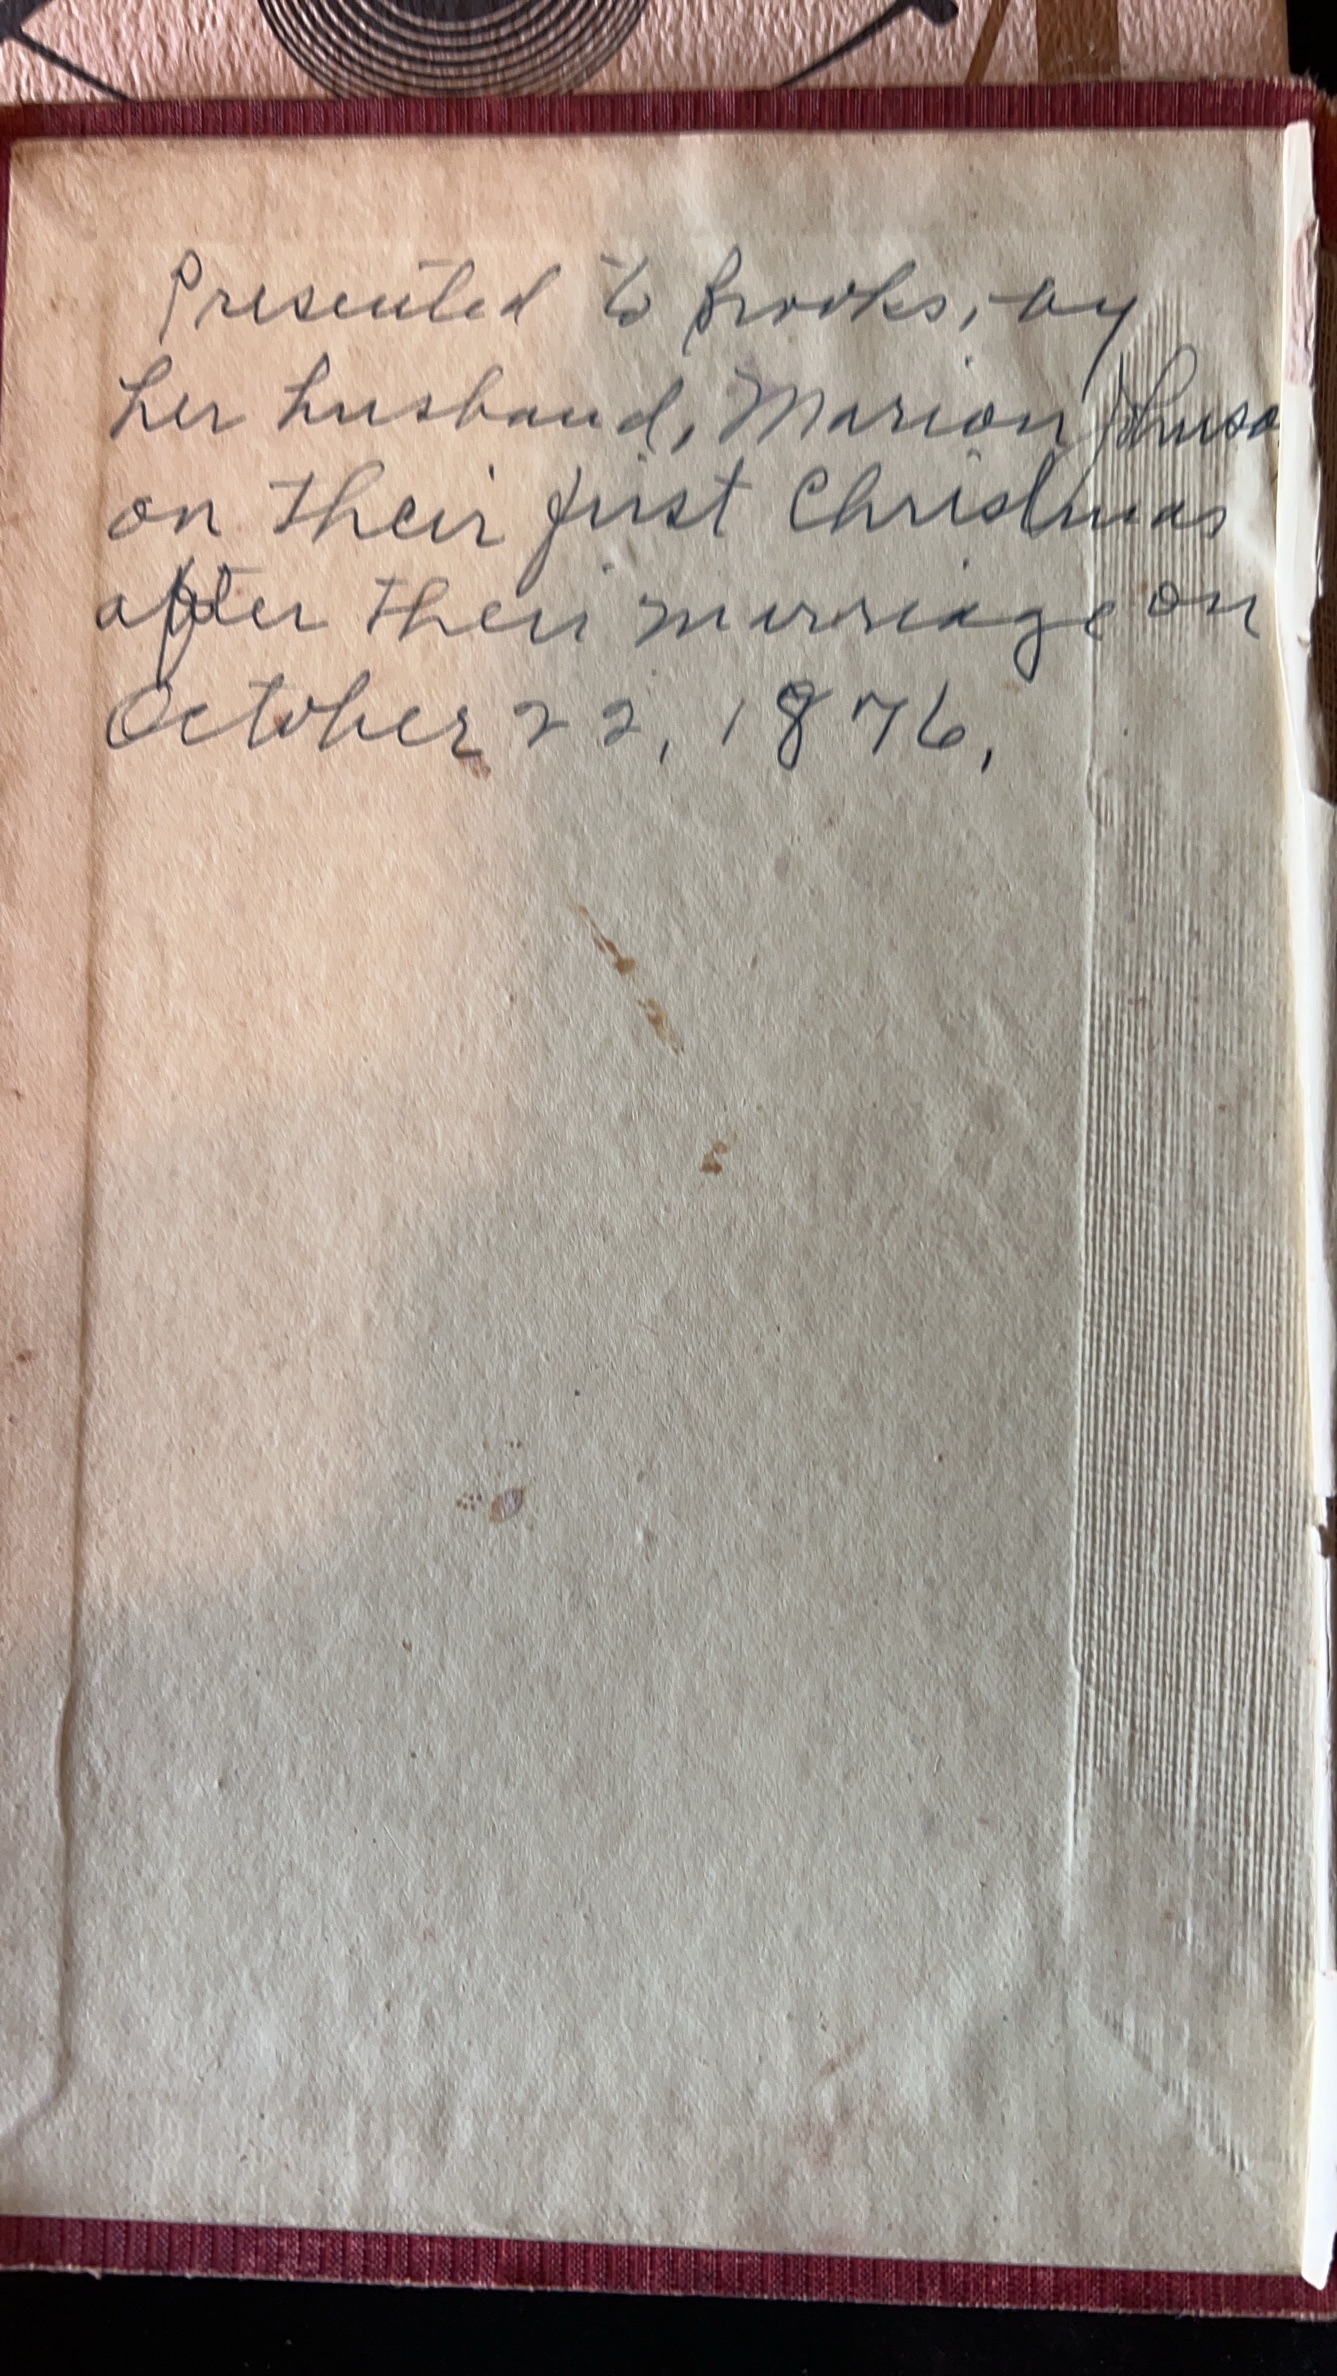 Presented to Brooks, by
her husband, Marion Johnso
on their first Christmas
after their marriage on
October 22, 1876.